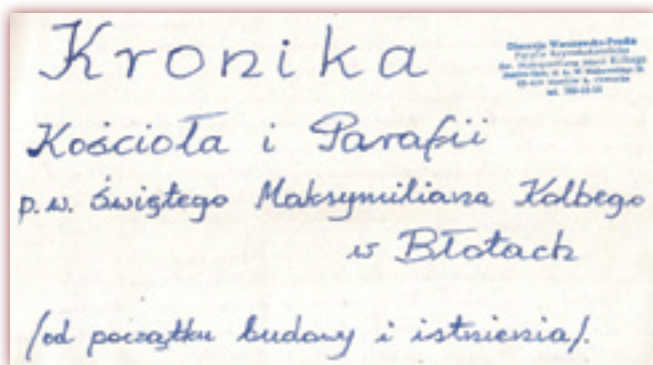 Kronika
Diecezja Warszawsko-Praska
Parafia Rzymskokatolicka
św. Maksymiliana Marii Kolbego
Kościoła i Parafii
p.w. Świętego Maksymiliana Kolbego
w Błotach
/od początku budowy i istnienia/.